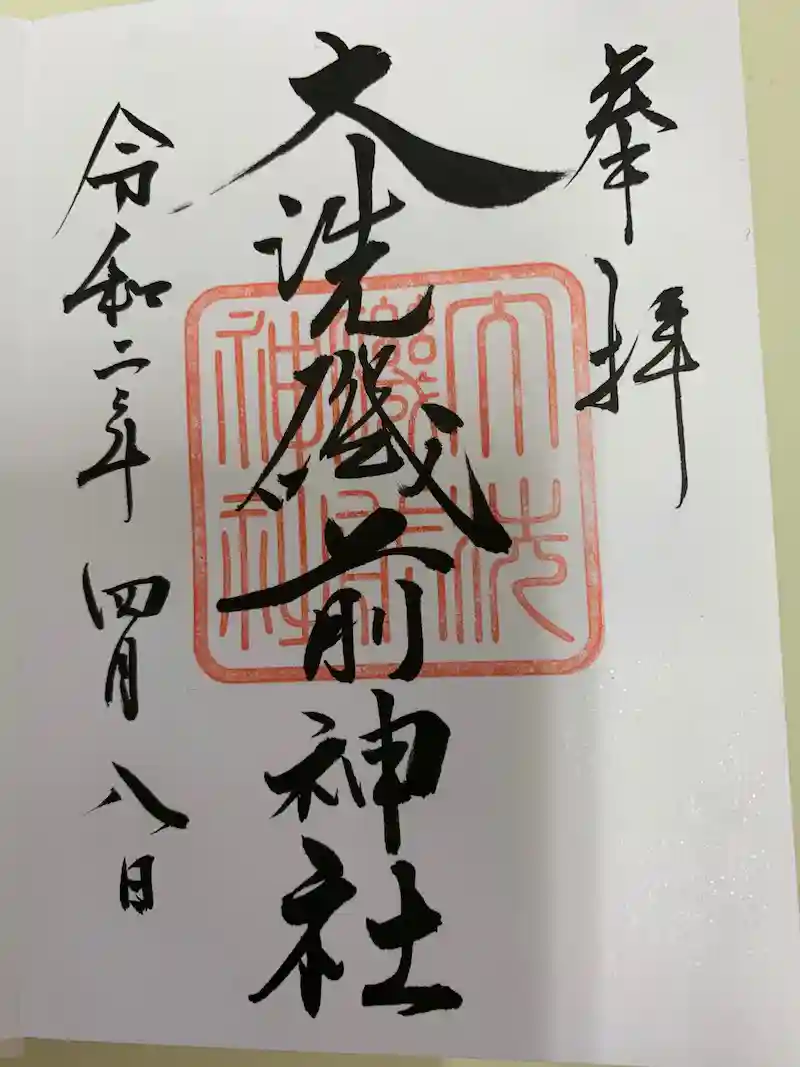 奉拝
大洗磯前神社
令和二年四月八日
大洗
磯前
神社